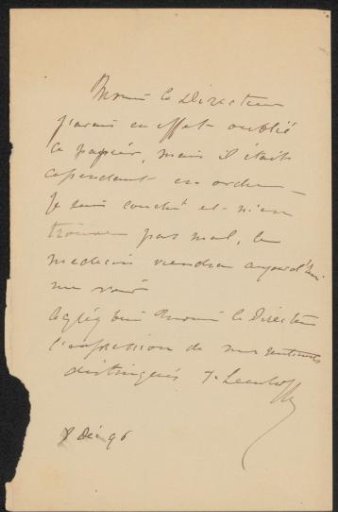 Monsieur le Directeur
j'avais en effet oublié
le papier, mais il était
cependant en ordre —
Je suis couché et m'en
trouve pas mal, le
medecin viendra aujourd'hui
me voir
Monsieur le Directeur
l'expression de mes sentiments
distingués
8 Déc 96